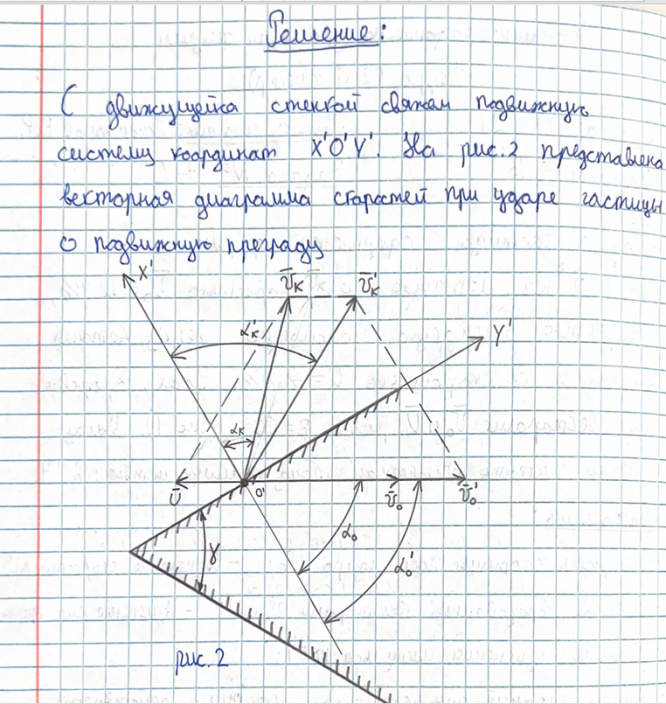 Решение:
С движущейся стенкой свяжем подвижную
систему координат X'O'Y'. На рис.2 представлена
векторная диаграмма скоростей при ударе частицы
о подвижную преграду
X'
v̅к
v̅'к
α'к
Y'
αк
U̅
O'
v̅₀
v̅'₀
α₀
α'₀
γ
рис.2